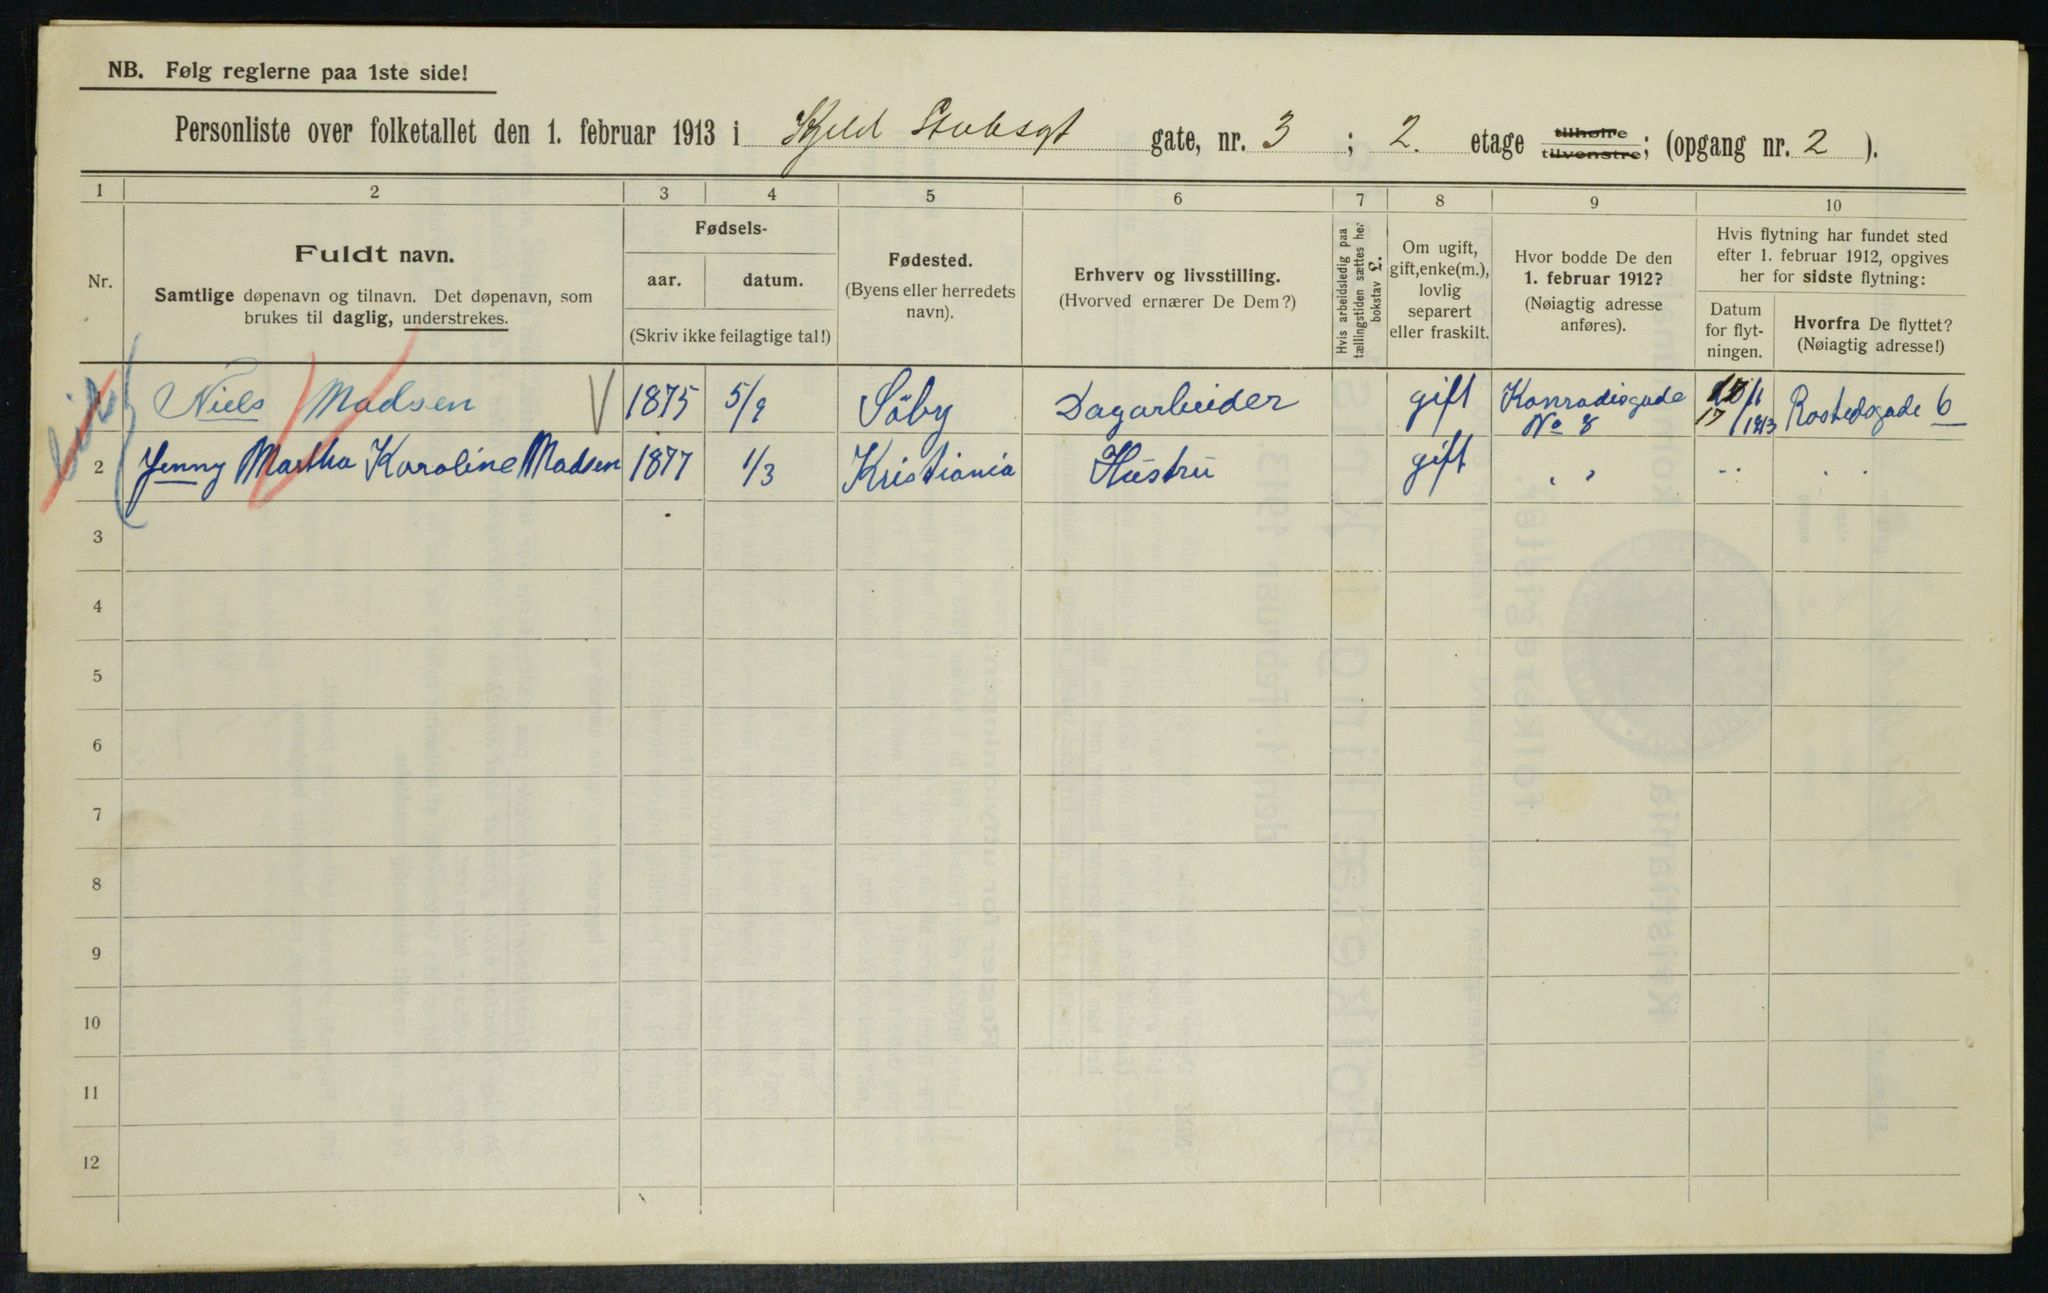 NB. Følg reglerne paa 1ste side!
Personliste over folketallet den 1. februar 1913 i Kjeld Stubsgt gate, nr. 3 ; 2. etage tilhøire tilvenstre; (opgang nr. 2 ).
1 2 3 4 5 6 7 8 9 10
Nr.
Fuldt navn.
Samtlige døpenavn og tilnavn. Det døpenavn, som
brukes til daglig, understrekes.
Fødsels-
aar. datum.
(Skriv ikke feilagtige tal!)
Fødested.
(Byens eller herredets
navn).
Erhverv og livsstilling.
(Hvorved ernærer De Dem?)
Hvis arbeidsledig paa
tællingstiden sættes her
bokstav L.
Om ugift,
gift, enke(m.),
lovlig
separert
eller fraskilt.
Hvor bodde De den
1. februar 1912?
(Nøiagtig adresse
anføres).
Hvis flytning har fundet sted
efter 1. februar 1912, opgives
her for sidste flytning:
Datum
for flyt-
ningen.
Hvorfra De flyttet?
(Nøiagtig adresse!)
1 Niels Madsen 1875 5/9 Söby Dagarbeider gift Konradisgade No 8 17/1 1913 Rostedsgade 6
2 Jenny Martha Karoline Madsen 1877 1/3 Kristiania Hustru gift " "
3
4
5
6
7
8
9
10
11
12